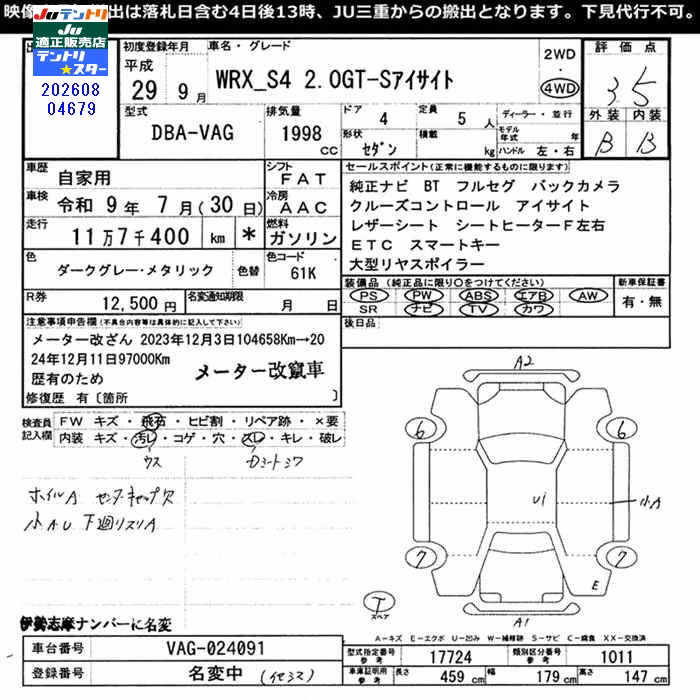 映像 出は落札日含む4日後13時、JU三重からの搬出となります。下見代行不可。
JUテントリ
JU適正販売店
テントリ★スター
202608
04679
初度登録年月
平成
29 9月
車名・グレード
WRX_S4 2.0GT-Sアイサイト
2WD
・
4WD
評価点
3.5
外装 内装
B B
型式
DBA-VAG
排気量
1998 CC
ドア 4
定員 5人
形状 セダン
積載 kg
ディーラー・並行
モデル年式 年
ハンドル 左・右
車歴
自家用
シフト
FAT
車検
令和 9年 7月(30日)
冷房
AAC
走行
11万7千400 km *
燃料
ガソリン
色
ダークグレー・メタリック
色替
色コード
61K
R券
12,500円
名変通知期限
月 日
セールスポイント(正常に機能するものに限ります)
純正ナビ BT フルセグ バックカメラ
クルーズコントロール アイサイト
レザーシート シートヒーターF左右
ETC スマートキー
大型リヤスポイラー
装備品(純正品に限り○をつけてください)
PS PW ABS エアB AW
SR ナビ TV カワ
新車保証書
有・無
後日品
注意事項申告欄(不具合内容等は具体的に記入して下さい)
メーター改ざん 2023年12月3日104658Km→20
24年12月11日97000Km
歴有のため
メーター改竄車
修復歴 有〔箇所 〕
検査員記入欄
FW キズ・飛石・ヒビ割・リペア跡・×要
内装 キズ・汚レ・コゲ・穴・スレ・キレ・破レ
ウス
ホイルA センターキャップ欠
小AU 下廻リスリA
A2
6 6
U1
小A
7 7
E
T
スペア
A1
A-キズ E-エクボ U-凹み W-補修跡 S-サビ C-腐食 XX-交換済
伊勢志摩ナンバーに名変
車台番号
VAG-024091
登録番号
名変中
型式指定番号 参考
17724
類別区分番号 参考
1011
車庫証明 参考
長さ 459 cm
幅 179 cm
高さ 147 cm